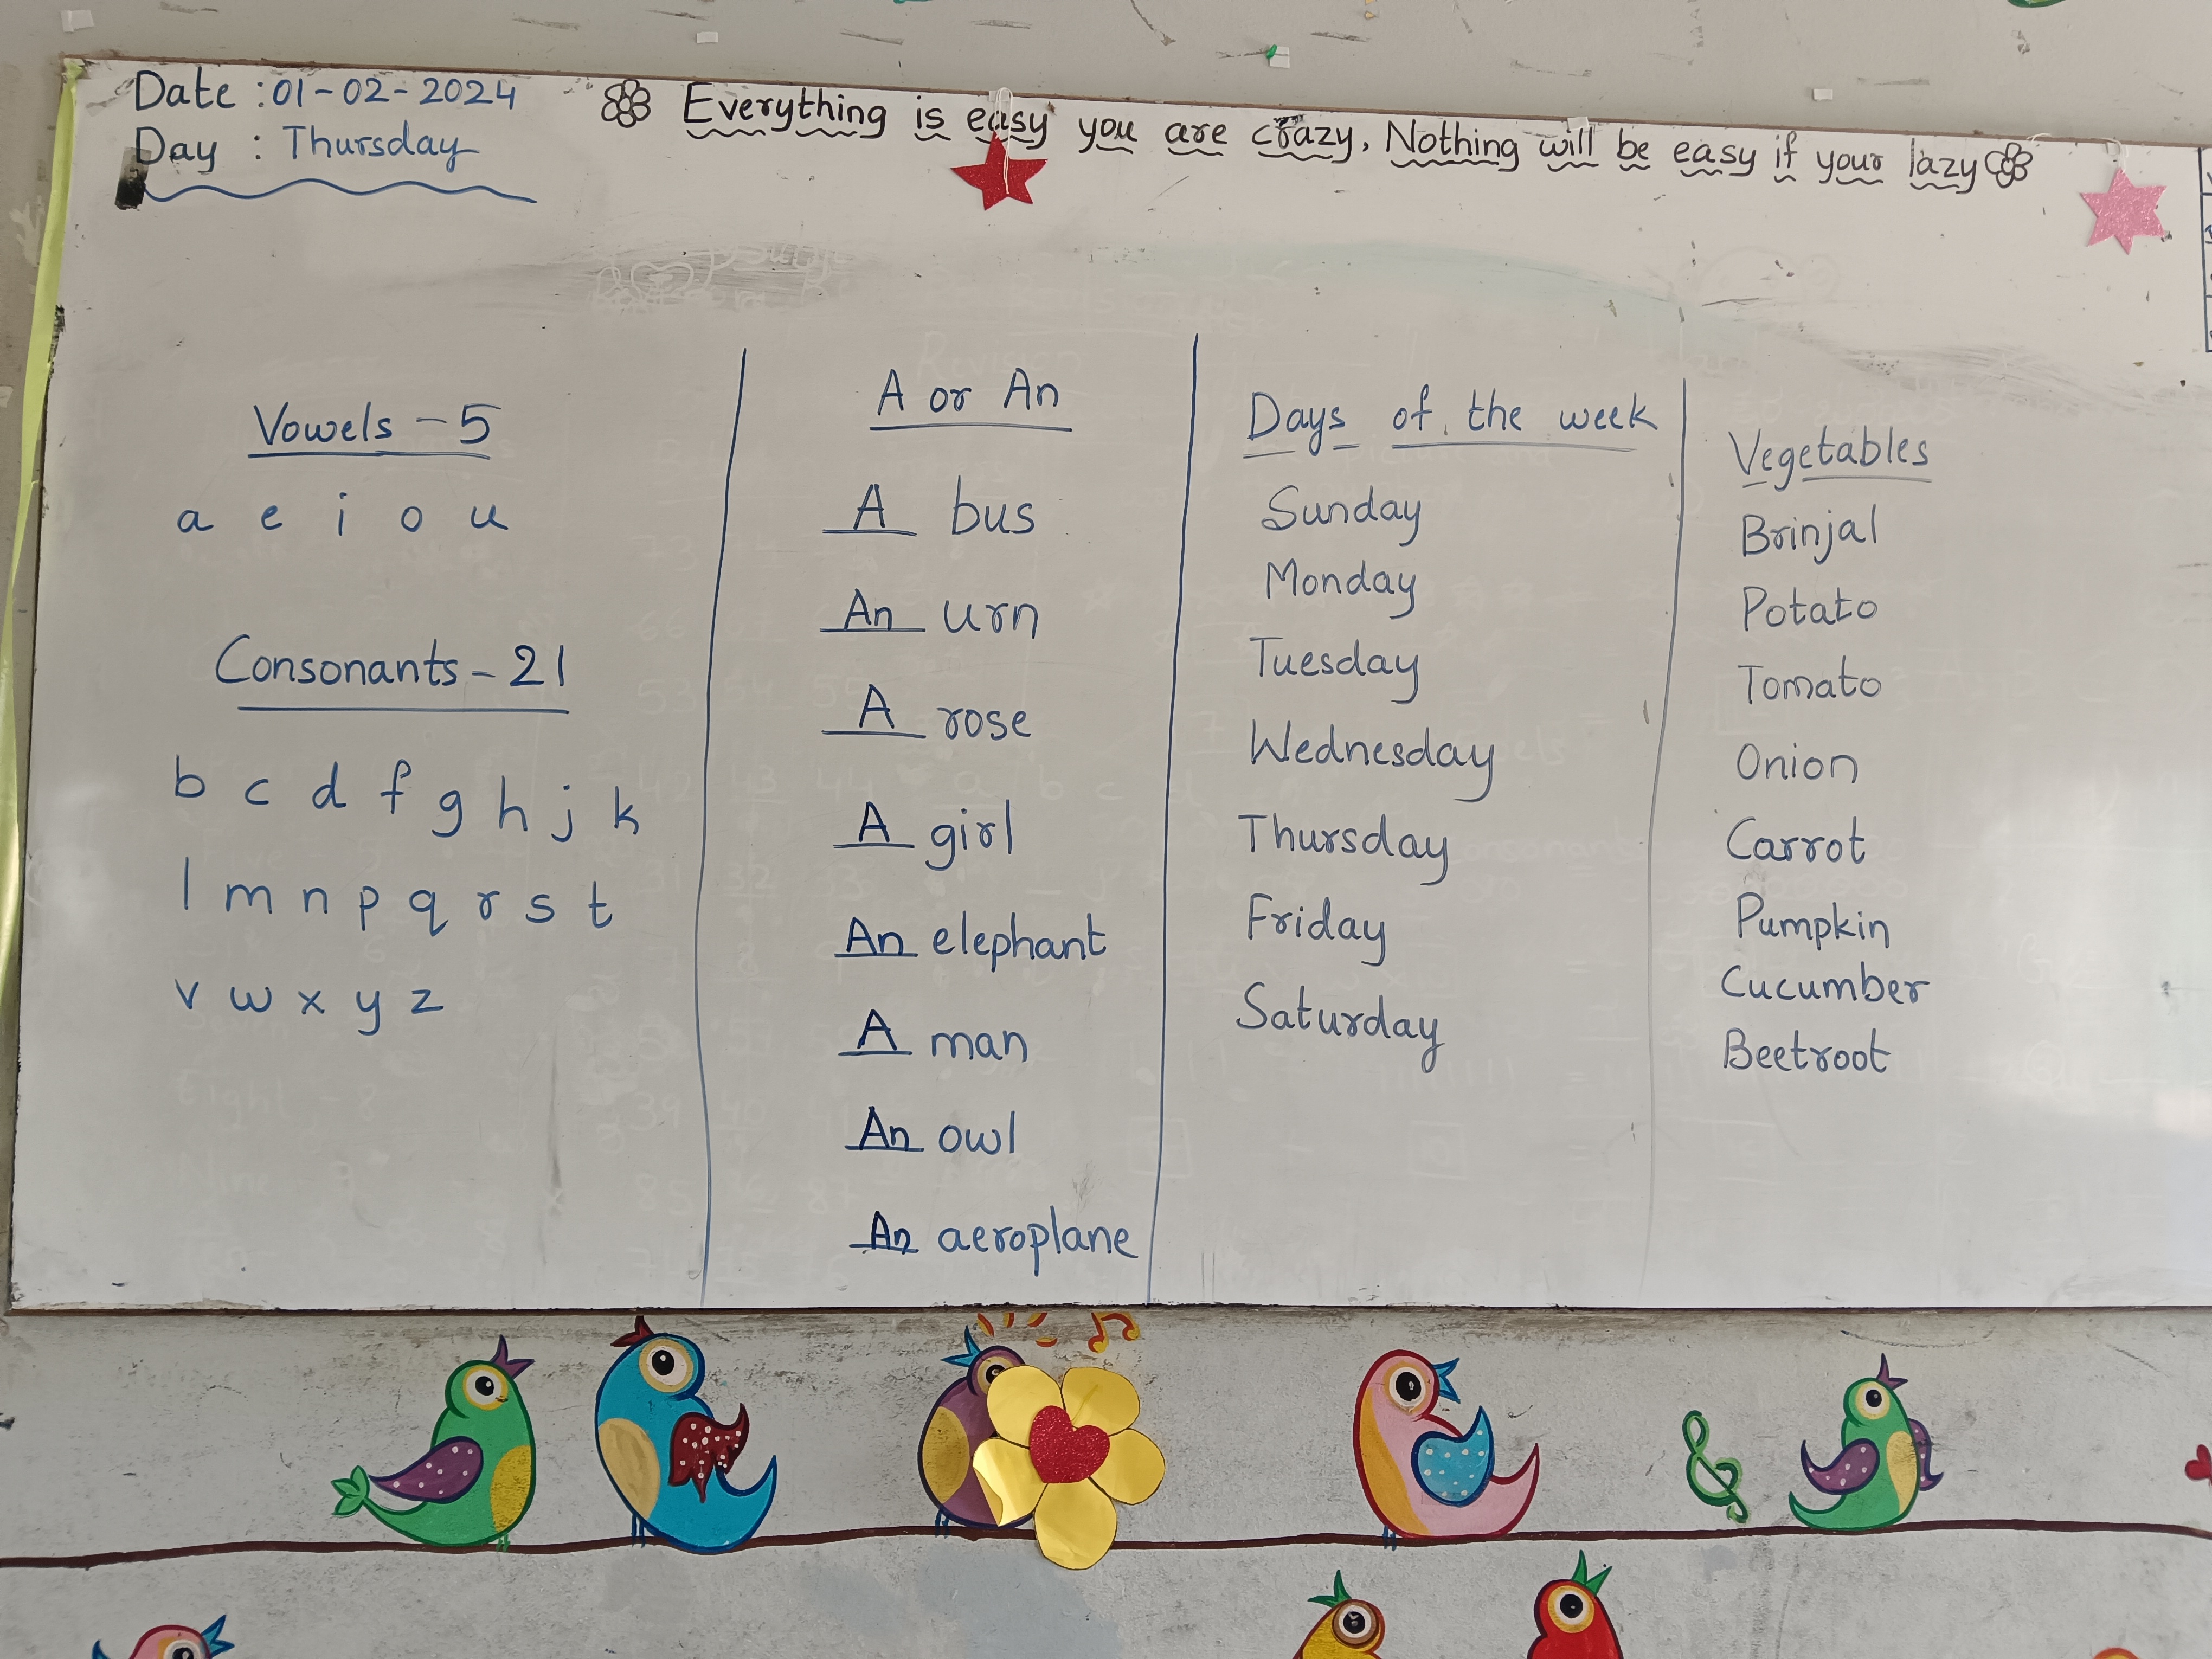 Date : 01-02-2024
Day : Thursday
Everything is easy you are crazy, Nothing will be easy if your lazy
Vowels - 5
a e i o u
Consonants - 21
b c d f g h j k
l m n p q r s t
v w x y z
A or An
A bus
An urn
A rose
A girl
An elephant
A man
An owl
An aeroplane
Days of the week
Sunday
Monday
Tuesday
Wednesday
Thursday
Friday
Saturday
Vegetables
Brinjal
Potato
Tomato
Onion
Carrot
Pumpkin
Cucumber
Beetroot